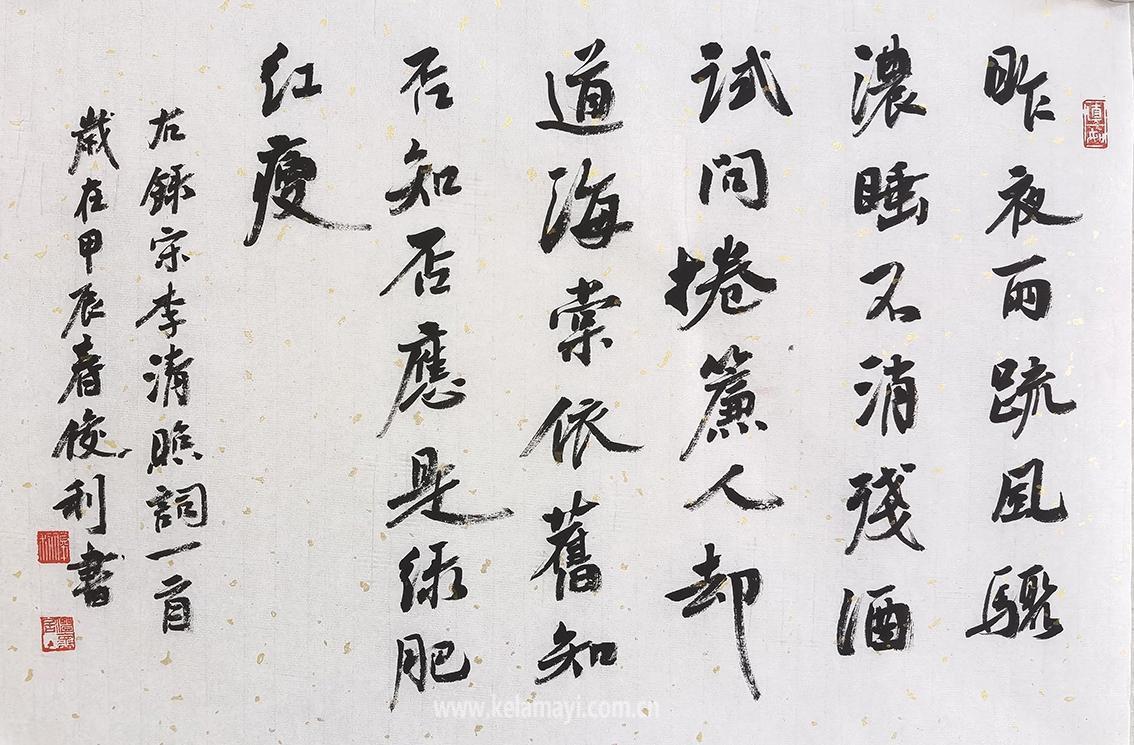 昨夜雨疏風驟
濃睡不消殘酒
試問捲簾人却
道海棠依舊知
否知否應是綠肥
紅瘦
右錄宋李清照詞一首
歲在甲辰春俊利書
www.kelamayi.com.cn